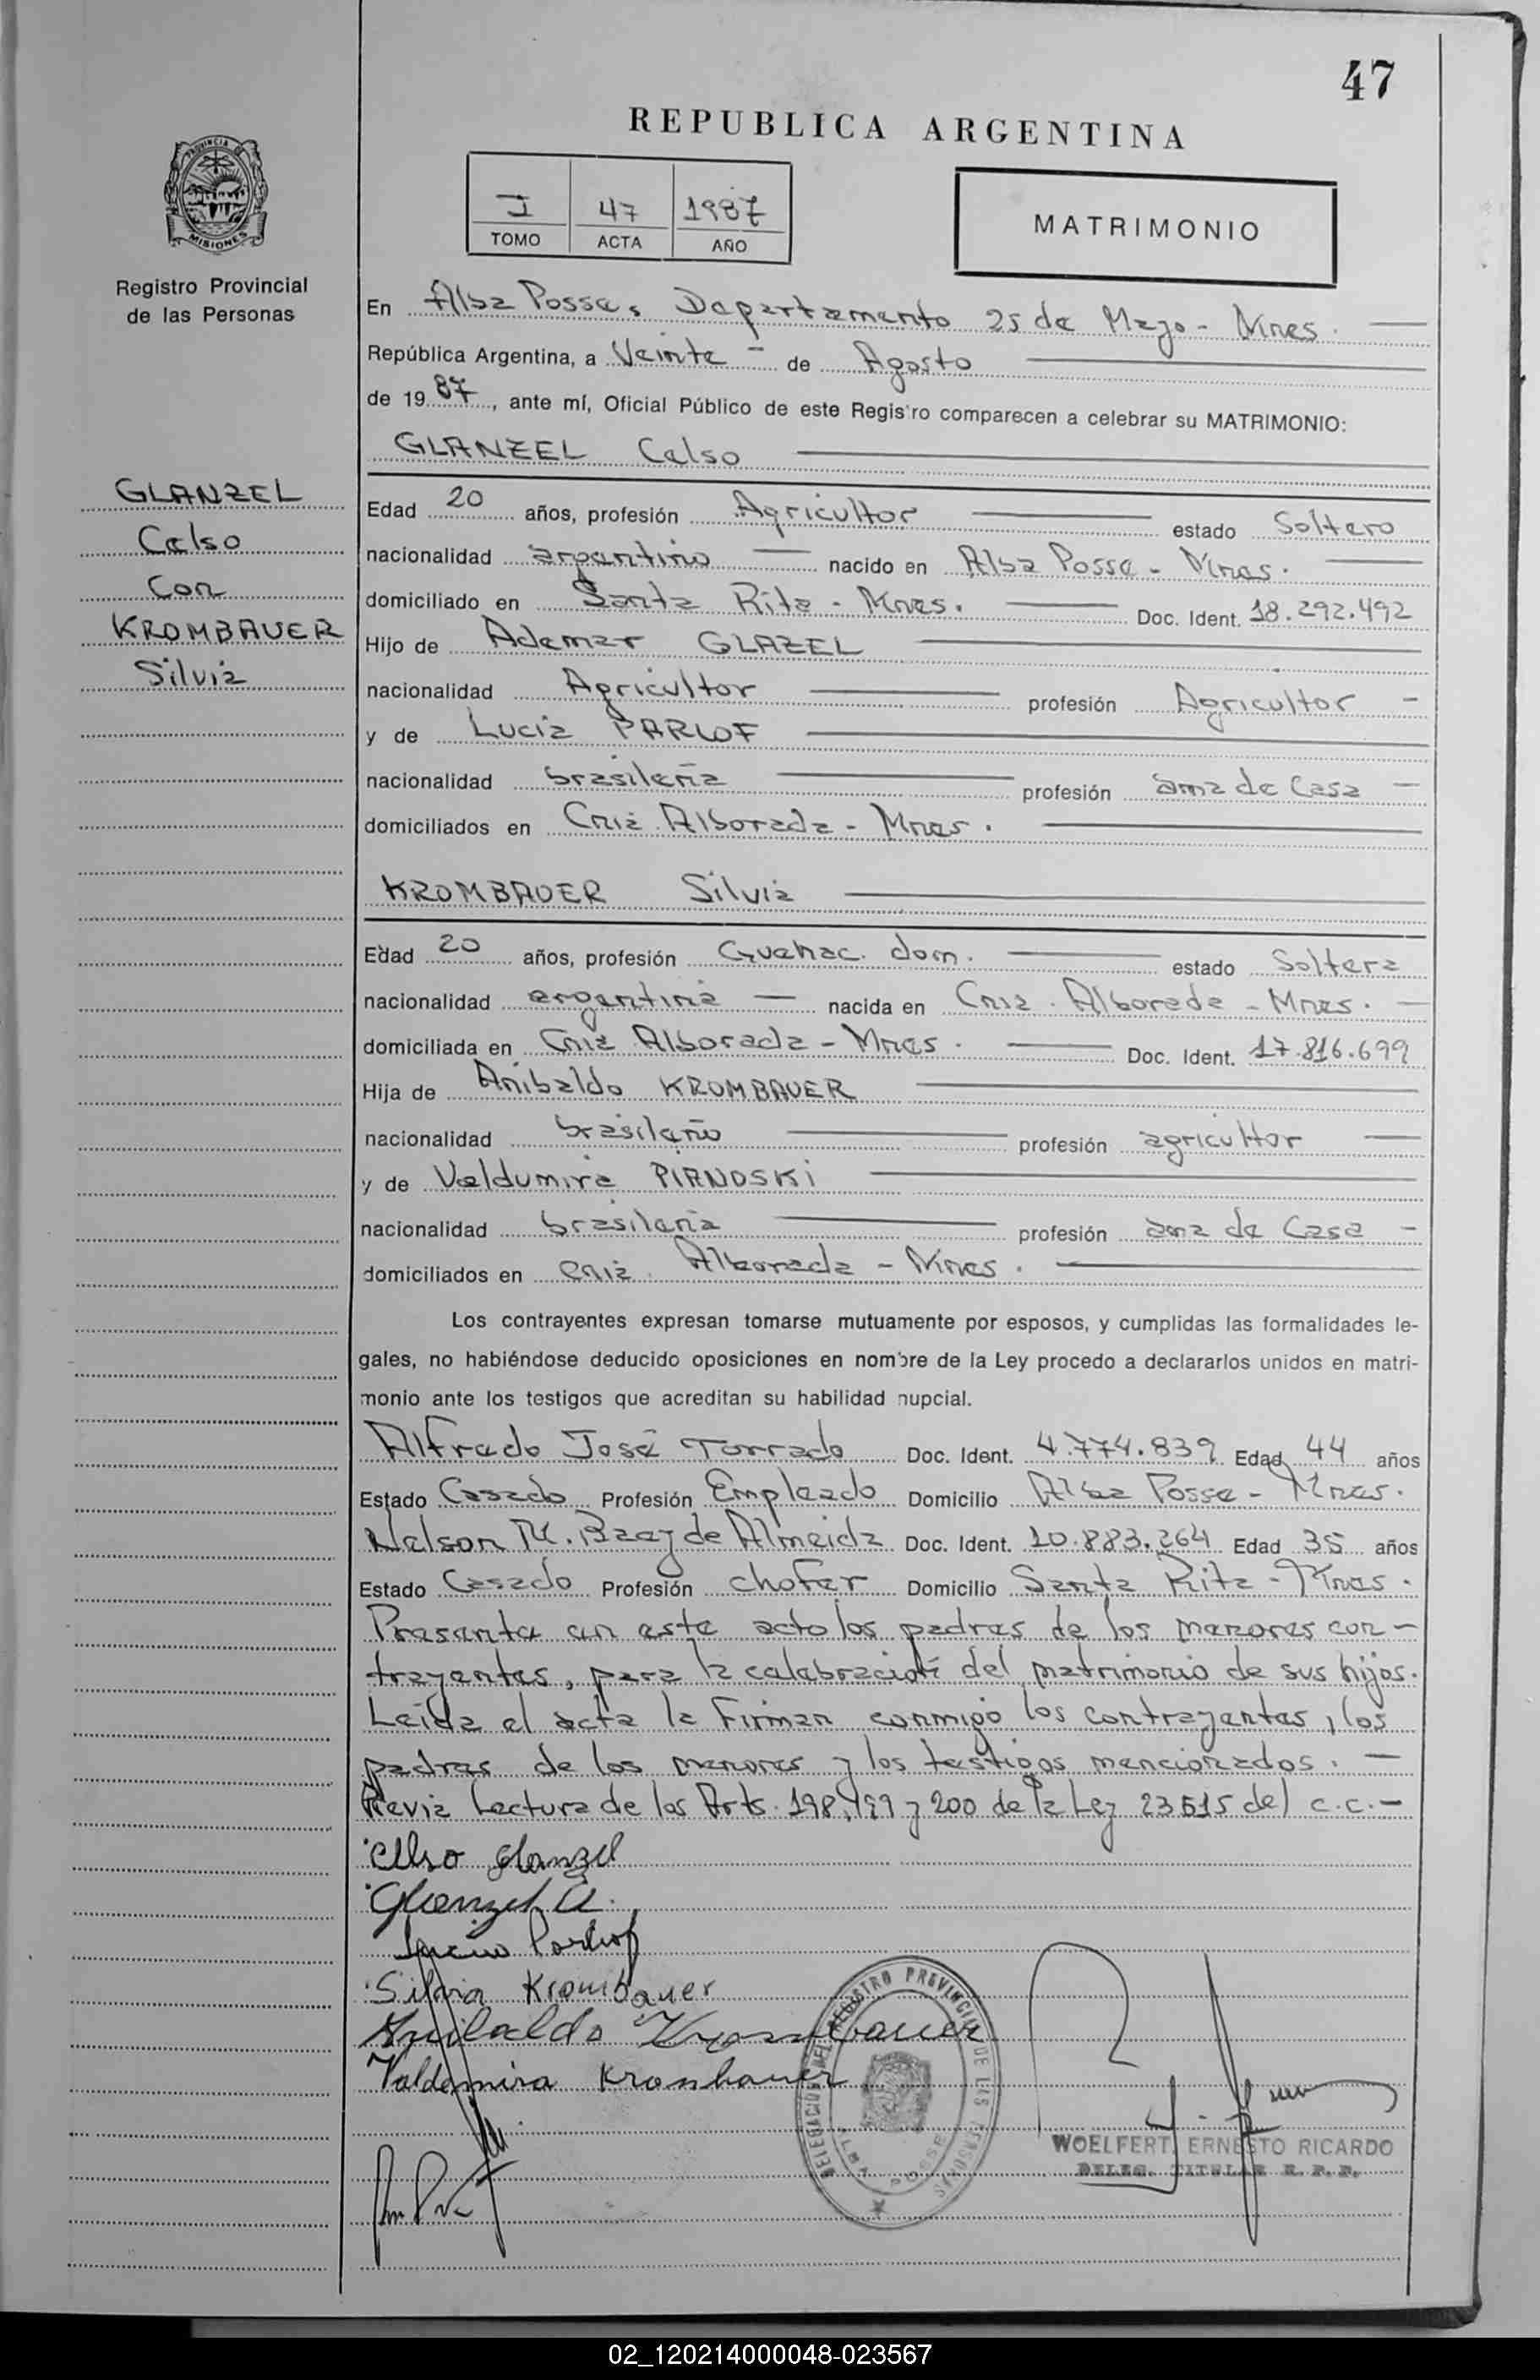 47
REPUBLICA ARGENTINA
PROVINCIA DE
MISIONES
Registro Provincial
de las Personas
I 47 1987
TOMO ACTA AÑO
MATRIMONIO
En Alba Posse, Departamento 25 de Mayo - Mnes.
República Argentina, a Veinte - de Agosto
de 19 87, ante mí, Oficial Público de este Registro comparecen a celebrar su MATRIMONIO:
GLANZEL Celso
GLANZEL
Celso
Con
KROMBAUER
Silvia
Edad 20 años, profesión Agricultor estado Soltero
nacionalidad argentino nacido en Alba Posse - Mnes.
domiciliado en Santa Rita - Mnes. Doc. Ident. 18.292.492
Hijo de Ademar GLAZEL
nacionalidad Agricultor profesión Agricultor -
y de Lucia PARLOF
nacionalidad brasileña profesión ama de Casa -
domiciliados en Cnia Alborada - Mnes.
KROMBAUER Silvia
Edad 20 años, profesión Quehac. dom. estado Soltera
nacionalidad argentina nacida en Cnia. Alborada - Mnes.
domiciliada en Cnia Alborada - Mnes. Doc. Ident. 17.816.699
Hija de Anibaldo KROMBAUER
nacionalidad brasileño profesión agricultor
y de Valdumira PIRNOSKi
nacionalidad brasileña profesión ama de Casa -
domiciliados en Cnia. Alborada - Mnes.
Los contrayentes expresan tomarse mutuamente por esposos, y cumplidas las formalidades le-
gales, no habiéndose deducido oposiciones en nombre de la Ley procedo a declararlos unidos en matri-
monio ante los testigos que acreditan su habilidad nupcial.
Alfredo José Torrado Doc. Ident. 4.774.839 Edad 44 años
Estado Casado Profesión Empleado Domicilio Alba Posse - Mnes.
Nelson M. Braz de Almeida Doc. Ident. 10.883.264 Edad 35 años
Estado Casado Profesión chofer Domicilio Santa Rita - Mnes.
Presente en este acto los padres de los menores con-
trayentes, para la celebración del matrimonio de sus hijos.
Leída el acta la Firman conmigo los contrayentes, los
padres de los menores y los testigos mencionados. -
Previa Lectura de los Arts. 198, 199 y 200 de la Ley 23515 del c.c. -
Celso Glanzel
Glanzel A.
Lucia Parlof
Silvia Krombauer
Anibaldo Krombauer
Valdemira Kronbauer
DELEGACION DEL REGISTRO PROVINCIAL DE LAS PERSONAS
ALBA POSSE
WOELFERT, ERNESTO RICARDO
DELEG. TITULAR R. P. P.
02_120214000048-023567